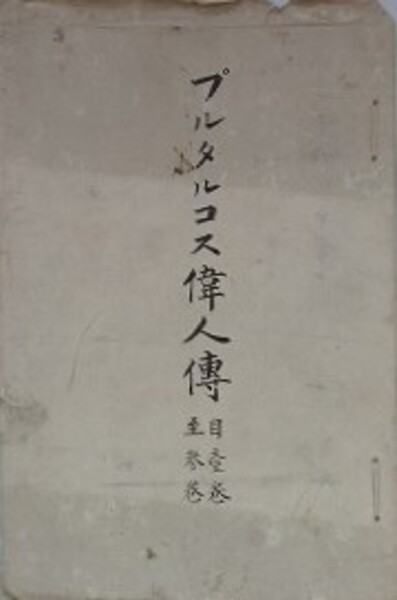 プルタルコス偉人傳
自壹巻
至参巻